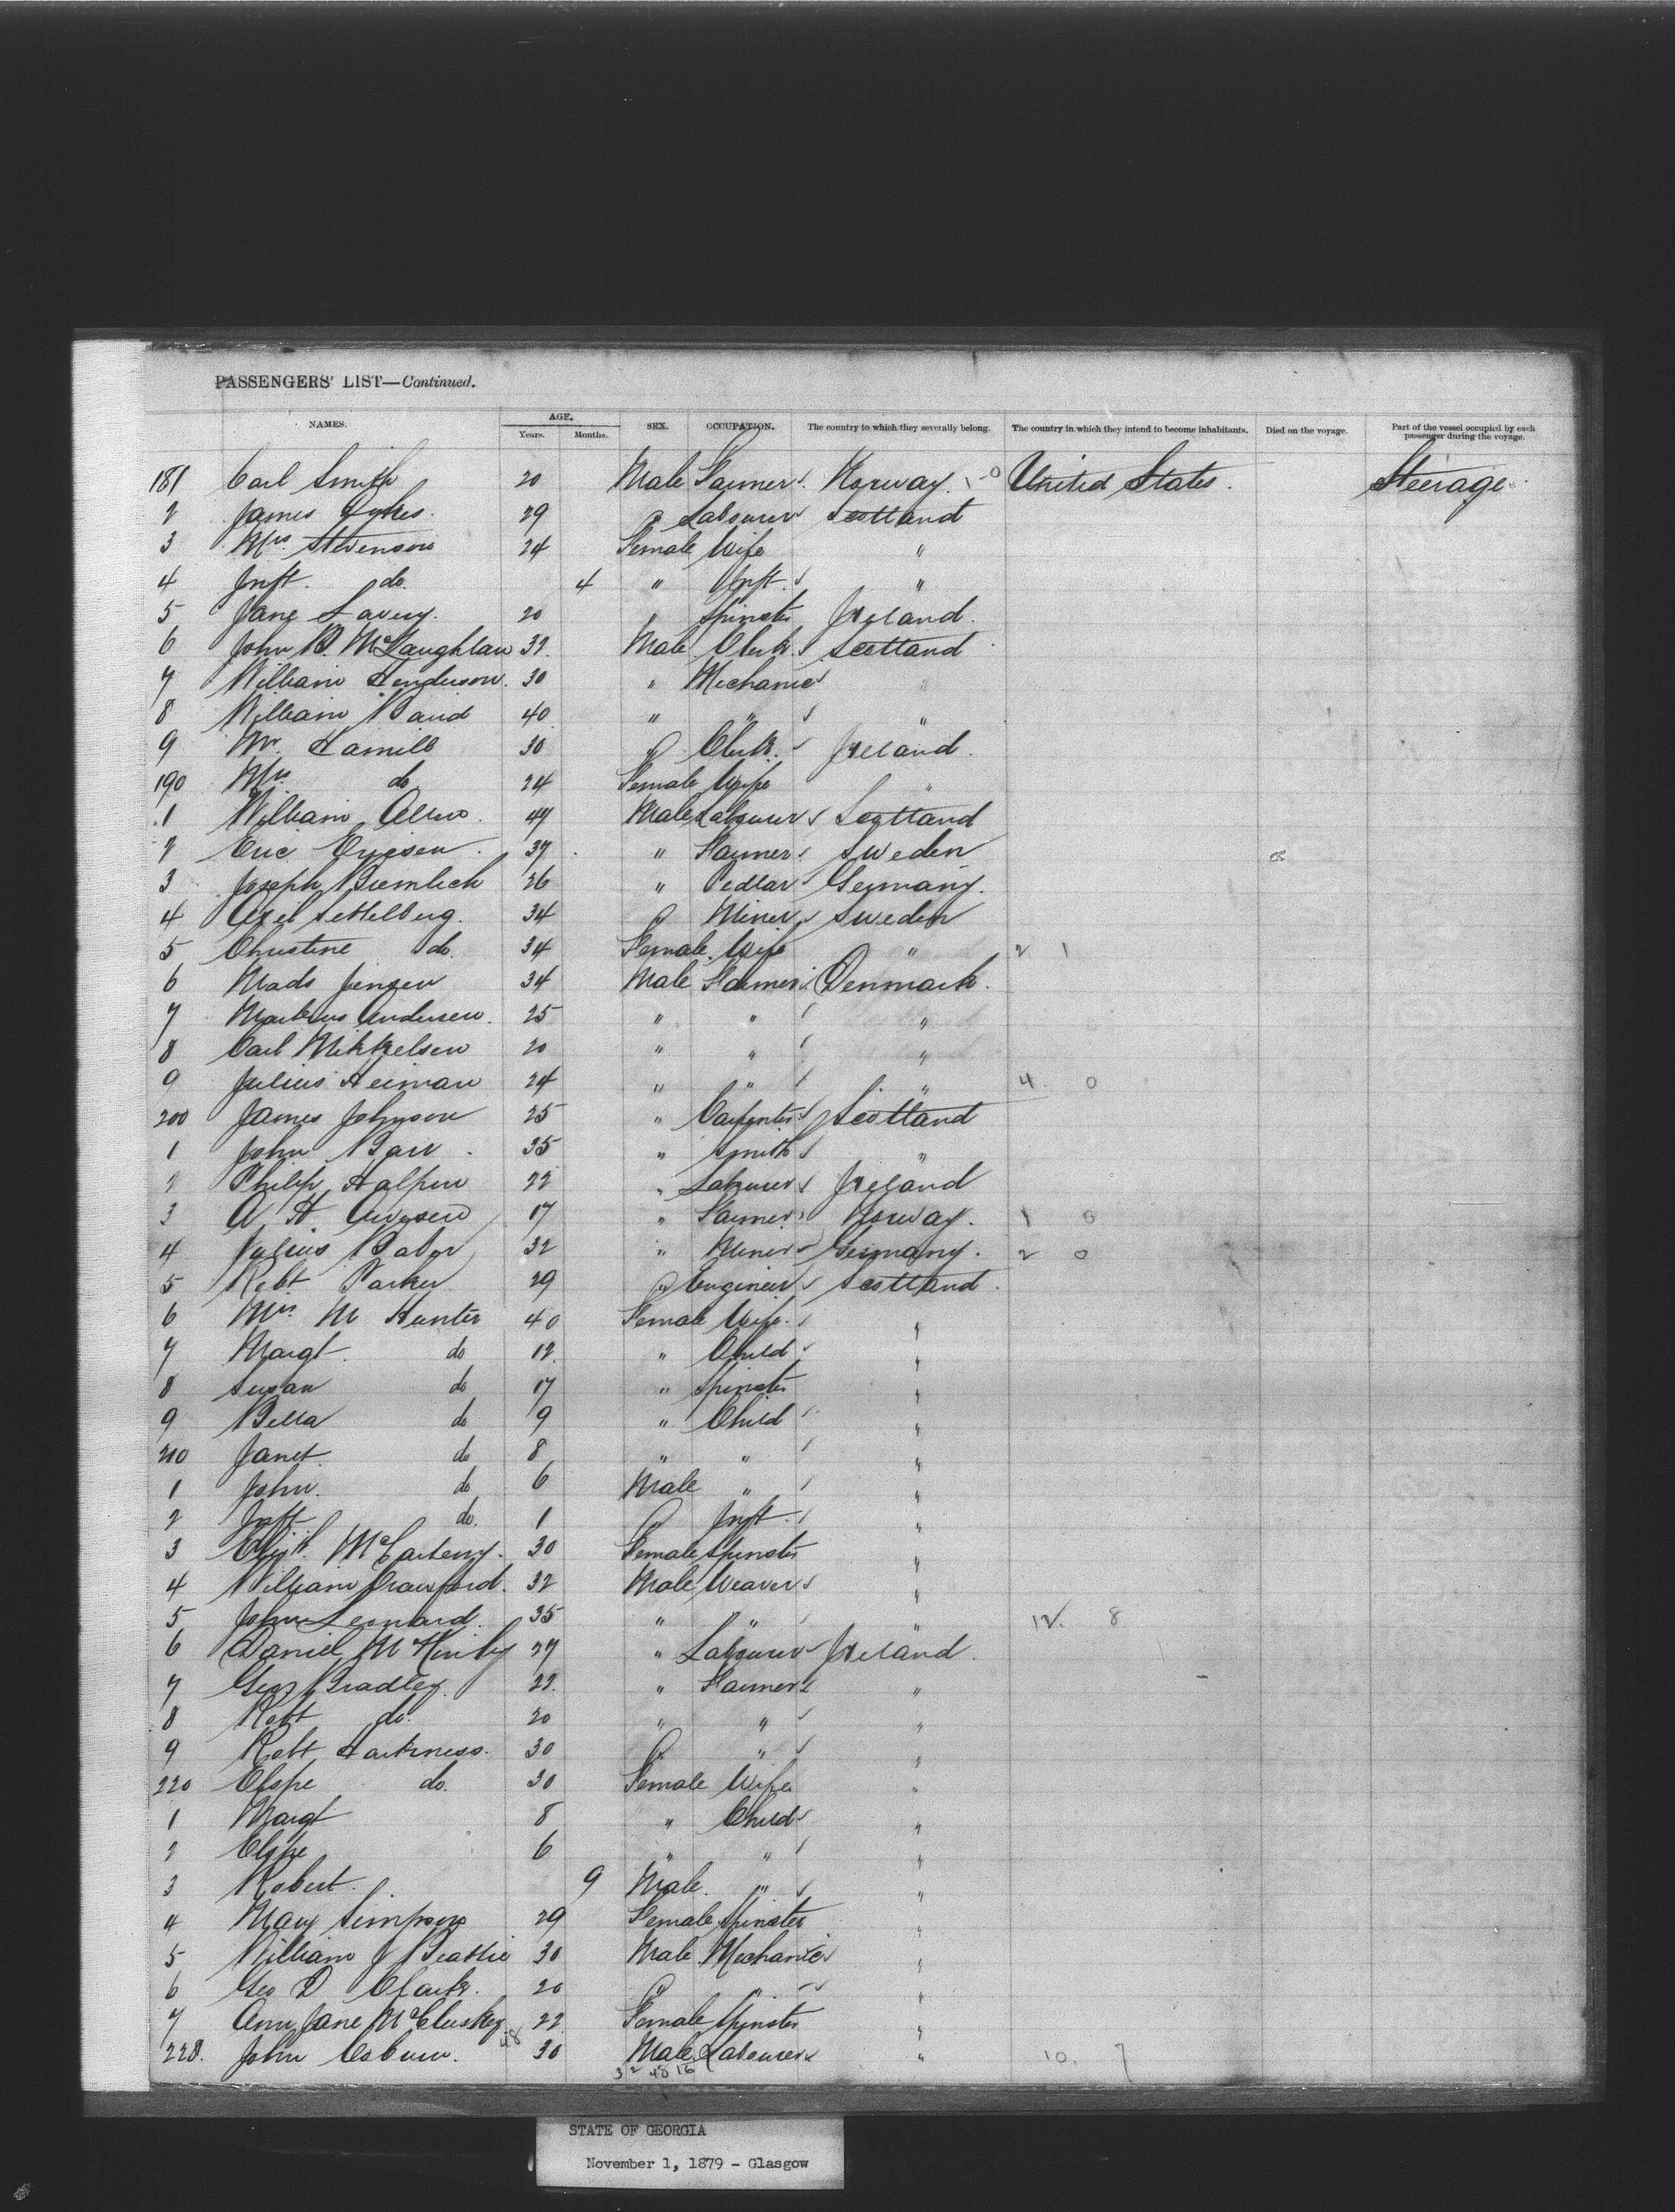 PASSENGERS' LIST—Continued.
NAMES. AGE. Years. Months. SEX. OCCUPATION. The country to which they severally belong. The country in which they intend to become inhabitants. Died on the voyage. Part of the vessel occupied by each passenger during the voyage.
181 Carl Smith 20 Male Farmer Norway. 1-0 United States. Steerage
2 James Dykes. 29 " Labourer Scotland
3 Mrs. Stevenson 24 Female Wife "
4 Inft. do. 4 " Inft. "
5 Jane Lavery. 20 " Spinster Ireland.
6 John B. McLaughlan 32. Male Clerk Scotland
7 William Henderson. 30 " Mechanic "
8 William Baird 40 " " "
9 Mr. Hamill 30 " Clerk. Ireland.
190 Mrs. do 24 Female Wife "
1 William 47 Male Labourer Scotland
2 Eric Ericsen. 37 " Farmer Sweden
3 Joseph 26 " Pedlar Germany.
4 Axel Settelberg. 34 " Miner Sweden
5 Christine do. 34 Female Wife " 2 1
6 Mads Jensen 34 Male Farmer Denmark.
7 Andersen. 25 " " "
8 Carl Mikkelsen 20 " " "
9 Julius Heiman 24 " " " 4 0
200 James Johnson 25 " Carpenter Scotland
1 John Barr. 35 " Smith "
2 Philip Halpin 22 " Labourer Ireland
3 A. H. 17 " Farmer Norway. 1 0
4 Julius 32 " Miner Germany. 2 0
5 Robt Parker 29 " Engineer Scotland.
6 Mrs. M Hunter 40 Female Wife. "
7 Margt. do 12. " Child "
8 Susan do 17 " Spinster "
9 Bella do 9 " Child "
210 Janet. do 8 " " "
1 John. do 6 Male " "
2 Inft do. 1 " Inft. "
3 Elizth. 30 Female Spinster "
4 William Crawford. 32 Male Weaver "
5 John Leonard. 35 " " " 12. 8
6 Daniel 27 " Labourer Ireland.
7 Geo. Bradley. 22. " Farmer "
8 Robt do. 20 " " "
9 Robt Harkness. 30 " " "
220 Elspe do. 30 Female Wife "
1 Margt 8 " Child "
2 Elspe 6 " " "
3 Robert. 9 Male. " "
4 Mary Simpson 29 Female Spinster "
5 William J Beattie 30 Male Mechanic "
6 Geo D Clark. 20 " " "
7 Ann Jane McCluskey 22 Female Spinster "
228. John Coburn. 48 30 Male Labourer " 10. 7
32 48 16
STATE OF GEORGIA
November 1, 1879 - Glasgow